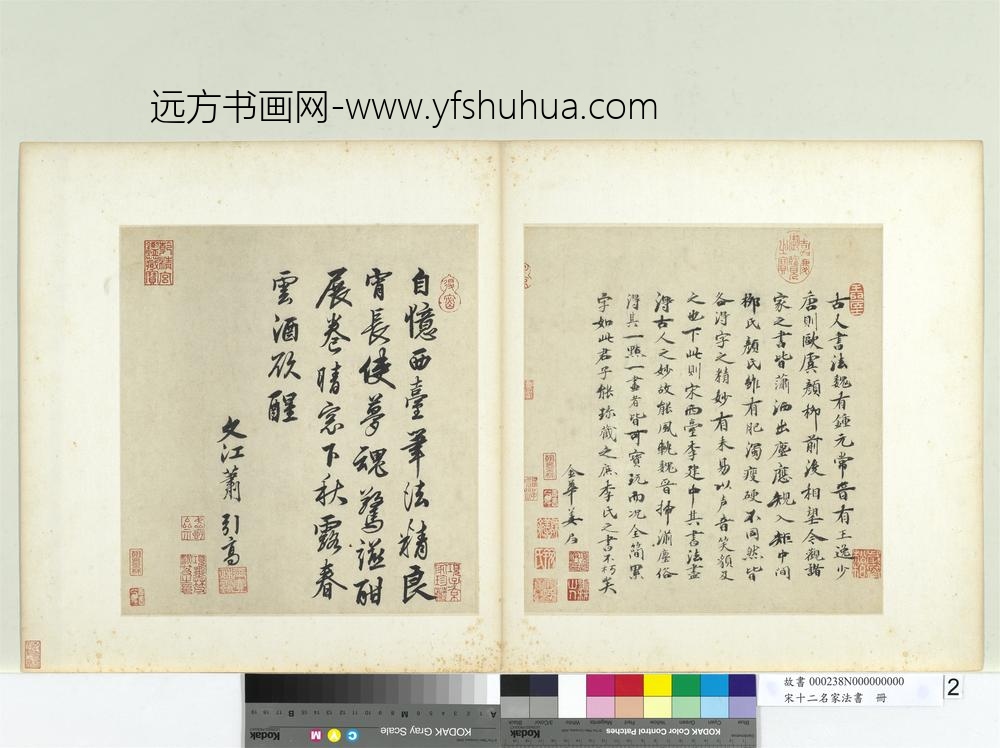 远方书画网-www.yfshuhua.com
古人書法魏有鍾元常晉有王逸少
唐則歐虞顏柳前後相望今觀諸
家之書皆蕭洒出塵應規入矩中間
柳氏顏氏雖有肥濁瘦硬不同然皆
各得字之精妙有未易以声音笑貌及
之也下此則宋西臺李建中其書法盡
得古人之妙故能風軌魏晉掃滌塵俗
得其一點一畫者皆可寶玩而况全簡累
字如此君子能珍藏之庶李氏之書不朽矣
金華姜
自憶西臺筆法精良
宵長使夢魂驚謐酣
展卷晴窓下秋露春
雲酒欲醒
文江蕭引高
故書 000238N000000000
宋十二名家法書 冊
2
Kodak Gray Scale
C Y M
A
M
B
KODAK Color Control Patches
Blue
Cyan
Green
Yellow
Red
Magenta
White
3/Color
Black